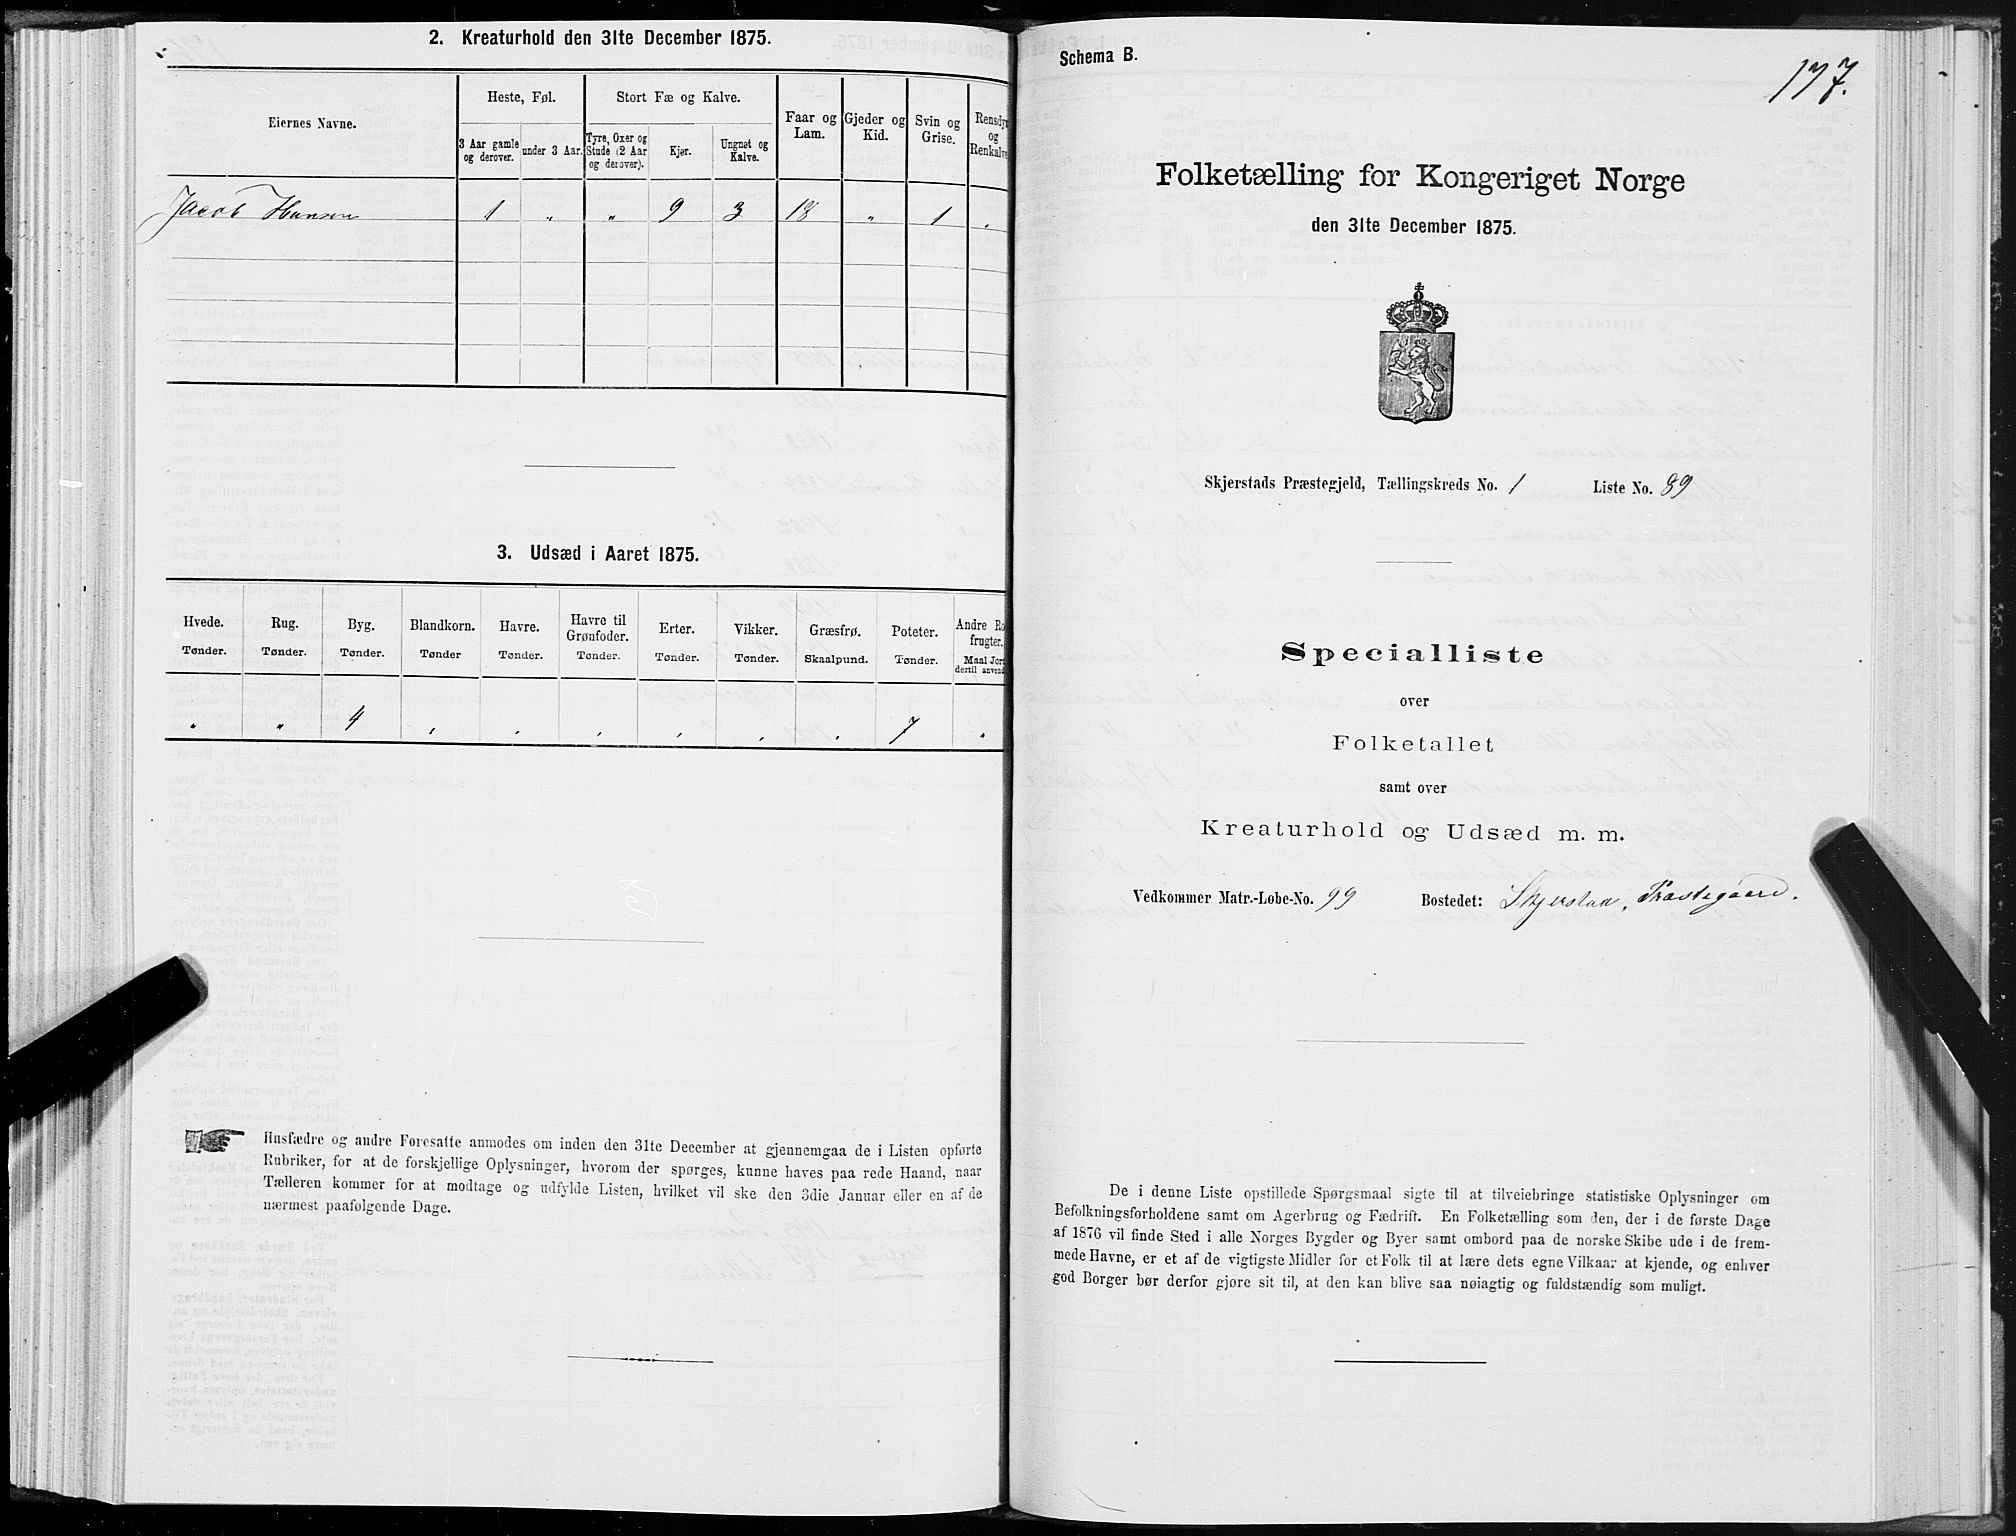 2. Kreaturhold den 31te December 1875.
Eiernes Navne.
Heste, Føl.
Stort Fæ og Kalve.
Faar og Lam.
Gjeder og Kid.
Svin og Grise.
Rensdyr og Renkalve
3 Aar gamle og derover.
under 3 Aar.
Tyre, Oxer og Stude (2 Aar og derover).
Kjør.
Ungnøt og Kalve.
Jacob Hansen 1 „ „ 9 3 18 „ 1 „
3. Udsæd i Aaret 1875.
Hvede. Rug. Byg. Blandkorn. Havre. Havre til Grønfoder. Erter. Vikker. Græsfrø. Poteter. Andre Ro frugter.
Tønder. Tønder. Tønder. Tønder Tønder. Tønder. Tønder. Tønder. Skaalpund. Tønder. Maal Jord dertil anvend
„ „ 4 „ „ „ „ „ „ 7 „
Husfædre og andre Foresatte anmodes om inden den 31te December at gjennemgaa de i Listen opførte
Rubriker, for at de forskjellige Oplysninger, hvorom der spørges, kunne haves paa rede Haand, naar
Tælleren kommer for at modtage og udfylde Listen, hvilket vil ske den 3die Januar eller en af de
nærmest paafølgende Dage.
Schema B.
177.
Folketælling for Kongeriget Norge
den 31te December 1875.
Skjerstads Præstegjeld, Tællingskreds No. 1 Liste No. 89
Specialliste
over
Folketallet
samt over
Kreaturhold og Udsæd m. m.
Vedkommer Matr.-Løbe-No. 99 Bostedet: Skjerstad, Præstegaard.
De i denne Liste opstillede Spørgsmaal sigte til at tilveiebringe statistiske Oplysninger om
Befolkningsforholdene samt om Agerbrug og Fædrift. En Folketælling som den, der i de første Dage
af 1876 vil finde Sted i alle Norges Bygder og Byer samt ombord paa de norske Skibe ude i de frem-
mede Havne, er et af de vigtigste Midler for et Folk til at lære dets egne Vilkaar at kjende, og enhver
god Borger bør derfor gjøre sit til, at den kan blive saa nøiagtig og fuldstændig som muligt.